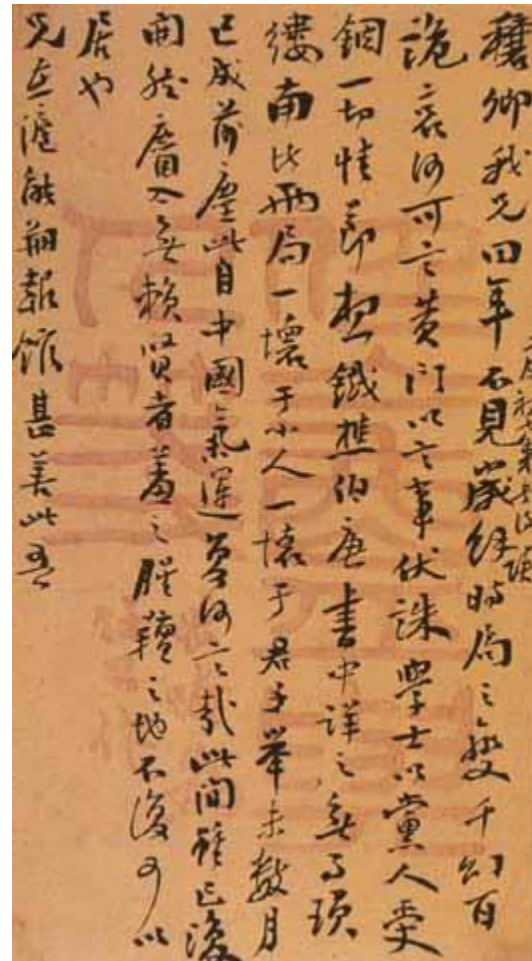 穰卿我兄四年不見歲經時局之變千幻百
詭哀何可言黃門以言事伏誅學士以黨人受
錮一切情節想鐵樵伯唐書中詳之無事瑣
縷南北兩局一壞于小人一壞于君子舉未數月
已成前塵此自中國氣運算何言哉此間雖已復
開然麕入無賴賢者羞之腥羶之地不復可以
居也
兄在滬能翔報館甚善此吾